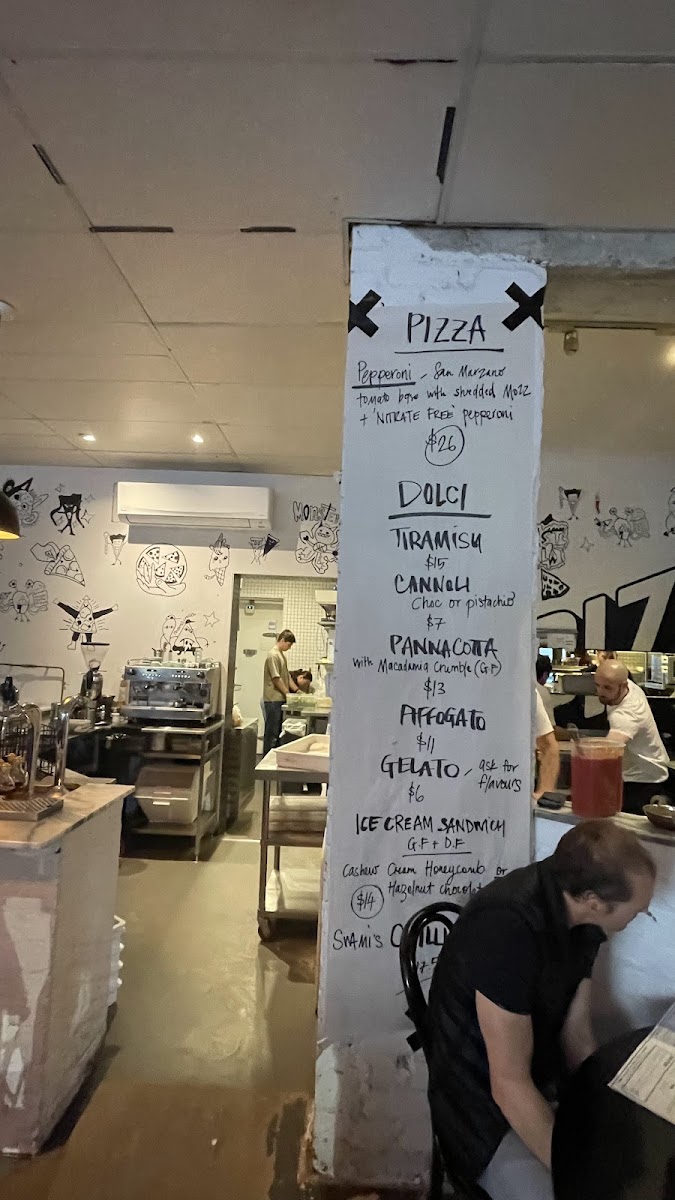 PIZZA
Pepperoni - San Marzano
tomato base with shredded Mozz
+ 'NITRATE FREE' pepperoni
$26
DOLCI
TIRAMISU
$15
CANNOLI
Choc or pistachio
$7
PANNACOTTA
with Macadamia Crumble (GF)
$13
AFFOGATO
$11
GELATO - ask for
flavours
$6
ICE CREAM SANDWICH
GF + D.F
Cashew Cream Honeycomb or
Hazelnut chocolate
$14
SWAMI'S